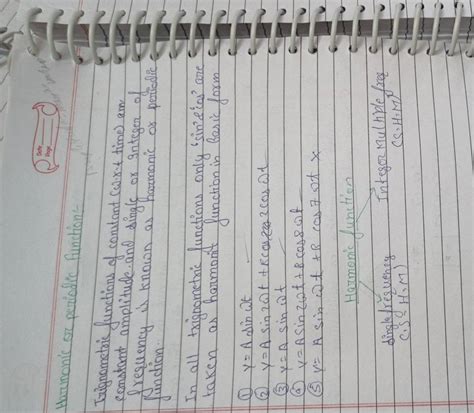 Date
Page
Harmonic or periodic function:-
Trignametric functions of constant (w.r.t time) am
constant amplitude and single or Integer of
frequency is known as harmonic or periodic
function.
In all trignametric functions only 'sin' & 'cos' are
taken as harmonic function in Basic form
① y = A sin ωt
② y = A sin 2ωt + B cos 2ωt
③ y = A sin ωt
④ y = A sin 2ωt + B cos 8ωt
⑤ y = A sin ωt + B cos 7ωt ×
Harmonic function
single frequency
(S.H.M)
Integer multiple freq
(S.H.M)